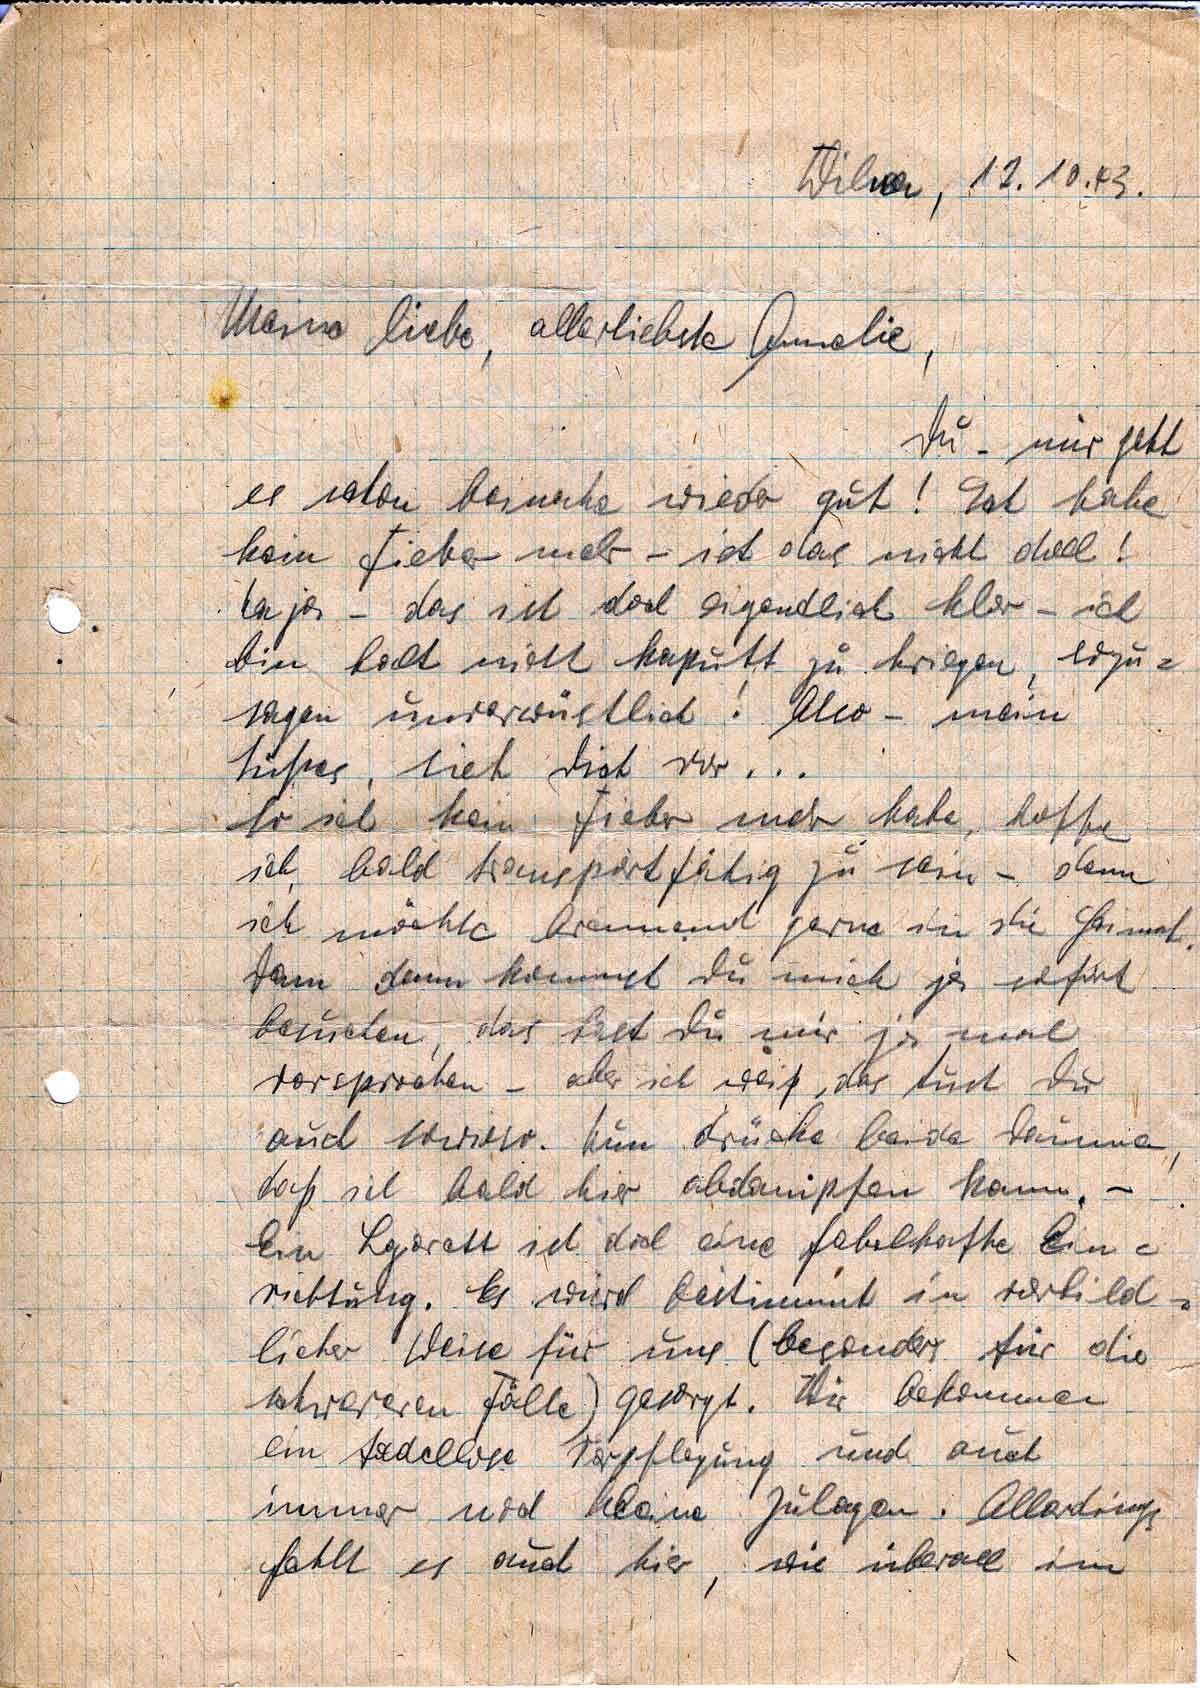 Wilna, 12.10.43.
Meine liebe, allerliebste Annelie,
Du - mir geht
es schon beinahe wieder gut! Ich habe
kein Fieber mehr - ist das nicht doll!
Na ja - das ist doch eigendlich klar - ich
bin halt nicht kaputt zu kriegen, sozu=
sagen unverwüstlich! Also - mein
Süßes, sieh Dich vor...
So ich kein Fieber mehr habe, hoffe
ich, bald transportfähig zu sein - denn
ich möchte brennend gerne in die Heimat.
Denn dann kommst Du mich ja sofort
besuchen, das hast Du mir ja mal
versprochen - aber ich weiß, das tust Du
auch sowieso. Nun drücke beide Daumen,
daß ich bald hier abdampfen kann. -
Ein Lazarett ist doch eine fabelhafte Ein=
richtung. Es wird bestimmt in vorbild=
licher Weise für uns (besonders für die
schwereren Fälle) gesorgt. Wir bekommen
ein tadellose Verpflegung und auch
immer noch kleine Zulagen. Allerdings
fehlt es auch hier, wie überall im